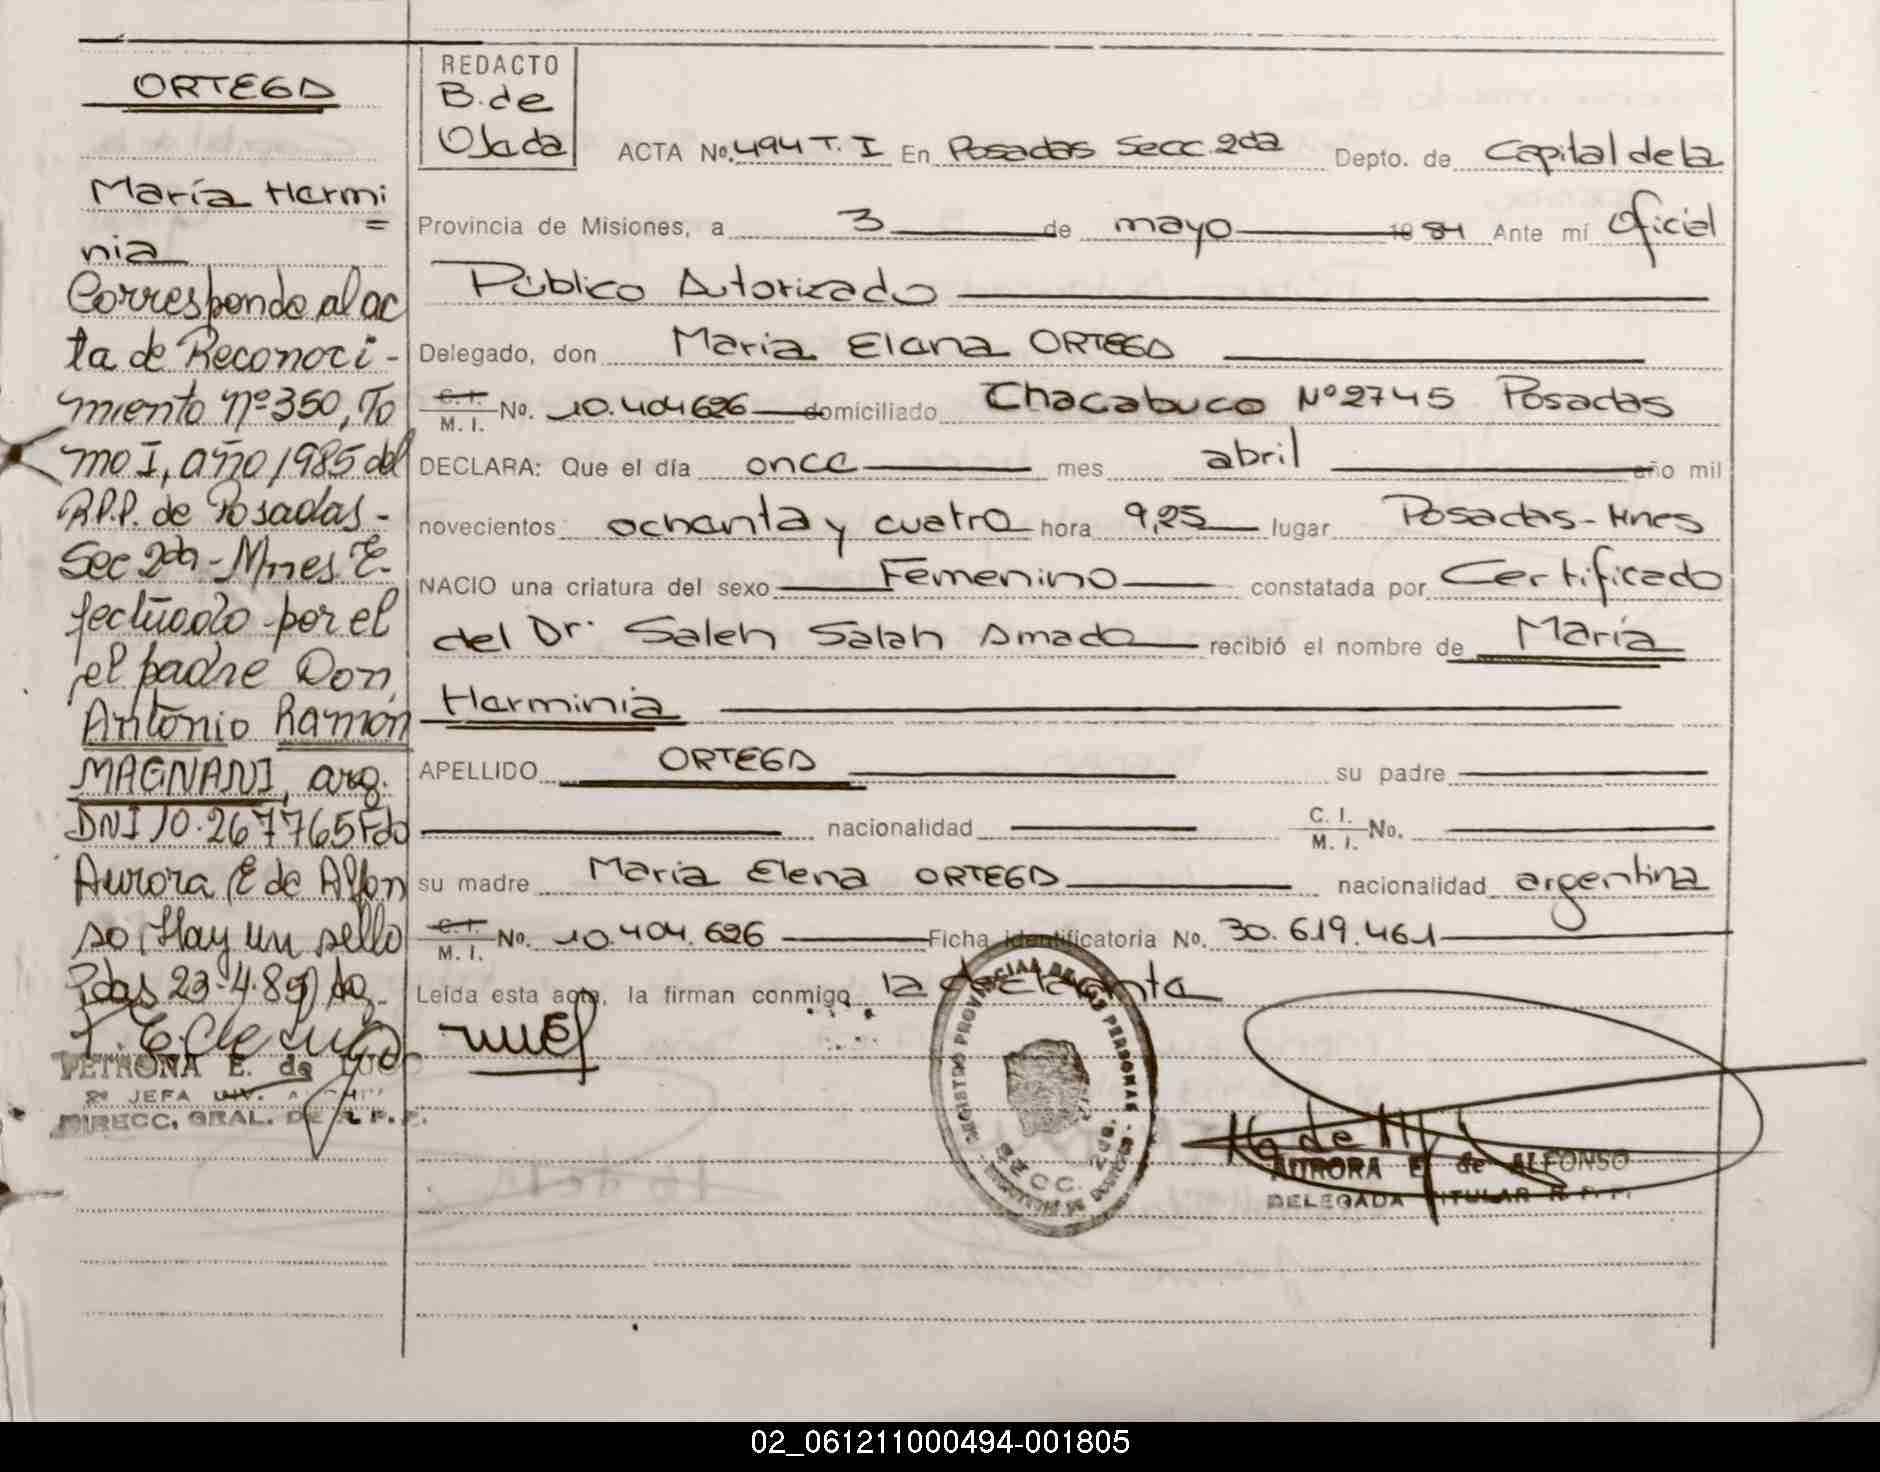 ORTEGA
María Hermi
=
nia
Corresponde al ac
ta de Reconoci-
miento nº 350, To
mo I, año 1985 del
R.P.P. de Posadas-
Sec 2da - Mnes E-
fectuado por el
el padre Don,
Antonio Ramón
MAGNANI, arg.
DNI 10.267765 Fdo
Aurora E de Alfon
so, Hay un sello
Pdas 23-4-85)
PETRONA E. de
2º JEFA
DIRECC. GRAL. DE R. P. P.
REDACTO
B. de
Ojeda
ACTA No. 494 T. I En Posadas Secc. 2da Depto. de Capital de la
Provincia de Misiones, a 3 de mayo 1984 Ante mí Oficial
Público Autorizado
Delegado, don María Elena ORTEGA
C. I.
M. I. No. 10.404626 domiciliado Chacabuco Nº 2745 Posadas
DECLARA: Que el día once mes abril año mil
novecientos ochenta y cuatro hora 9,25 lugar Posadas-Mnes
NACIO una criatura del sexo Femenino constatada por Certificado
del Dr. Saleh Salah Amado recibió el nombre de María
Herminia
APELLIDO ORTEGA su padre
nacionalidad C. I.
M. I. No.
su madre María Elena ORTEGA nacionalidad argentina
C. I.
M. I. No. 10.404.626 Ficha identificatoria No. 30.619.461
Leída esta acta, la firman conmigo la declarante
REGISTRO PROVINCIAL DE LAS PERSONAS
SECC. 2da.
AURORA E. de ALFONSO
DELEGADA TITULAR R. P. P.
02_061211000494-001805